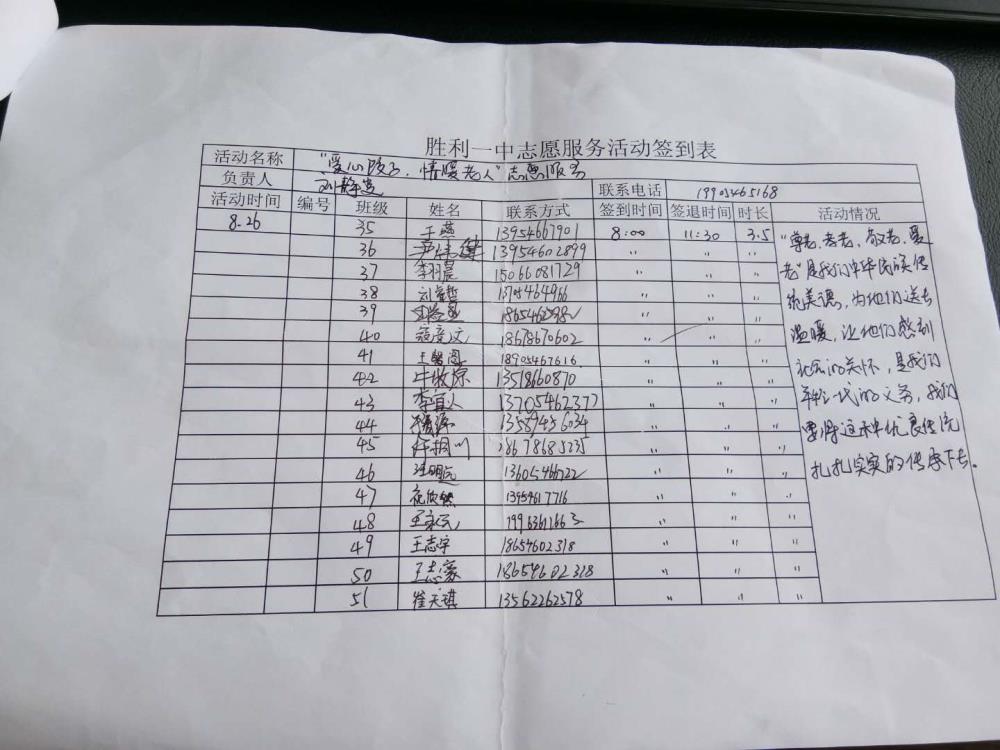 胜利一中志愿服务活动签到表
活动名称 "爱心孩子，情暖老人"志愿服务
负责人 联系电话 19905465168
活动时间 编号 班级 姓名 联系方式 签到时间 签退时间 时长 活动情况
8.26 35 于燕 13954667901 8:00 11:30 3.5 "尊老、孝老、敬老、爱
36 13954602899 〃 〃 〃 老"是我们中华民族传
37 李羽晨 15066081729 〃 〃 〃 统美德，为他们送去
38 13705464966 〃 〃 〃 温暖，让他们感到
39 〃 〃 〃
40 18678670602 〃 〃 社会的关怀，是我们
41 王馨阁 18905467616 〃 〃 〃
42 牛牧原 13518660870 〃 〃 〃 年轻一代的义务，我们
43 李宜人 13705462377 〃 〃 〃
44 13589456034 〃 〃 〃 要将这种优良传统
45 18678685235 〃 〃 〃
46 13605466722 〃 〃 〃 扎扎实实的传承下去。
47 13954617716 〃 〃 〃
48 19963611663 〃 〃 〃
49 王志宇 18654602318 〃 〃 〃
50 王志豪 18654602318 〃 〃 〃
51 崔天祺 13562262578 〃 〃 〃